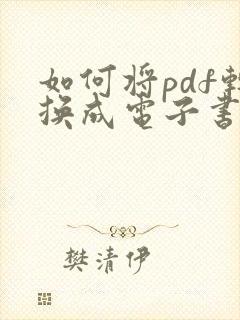 如何将pdf转
换成电子书
樊清伊